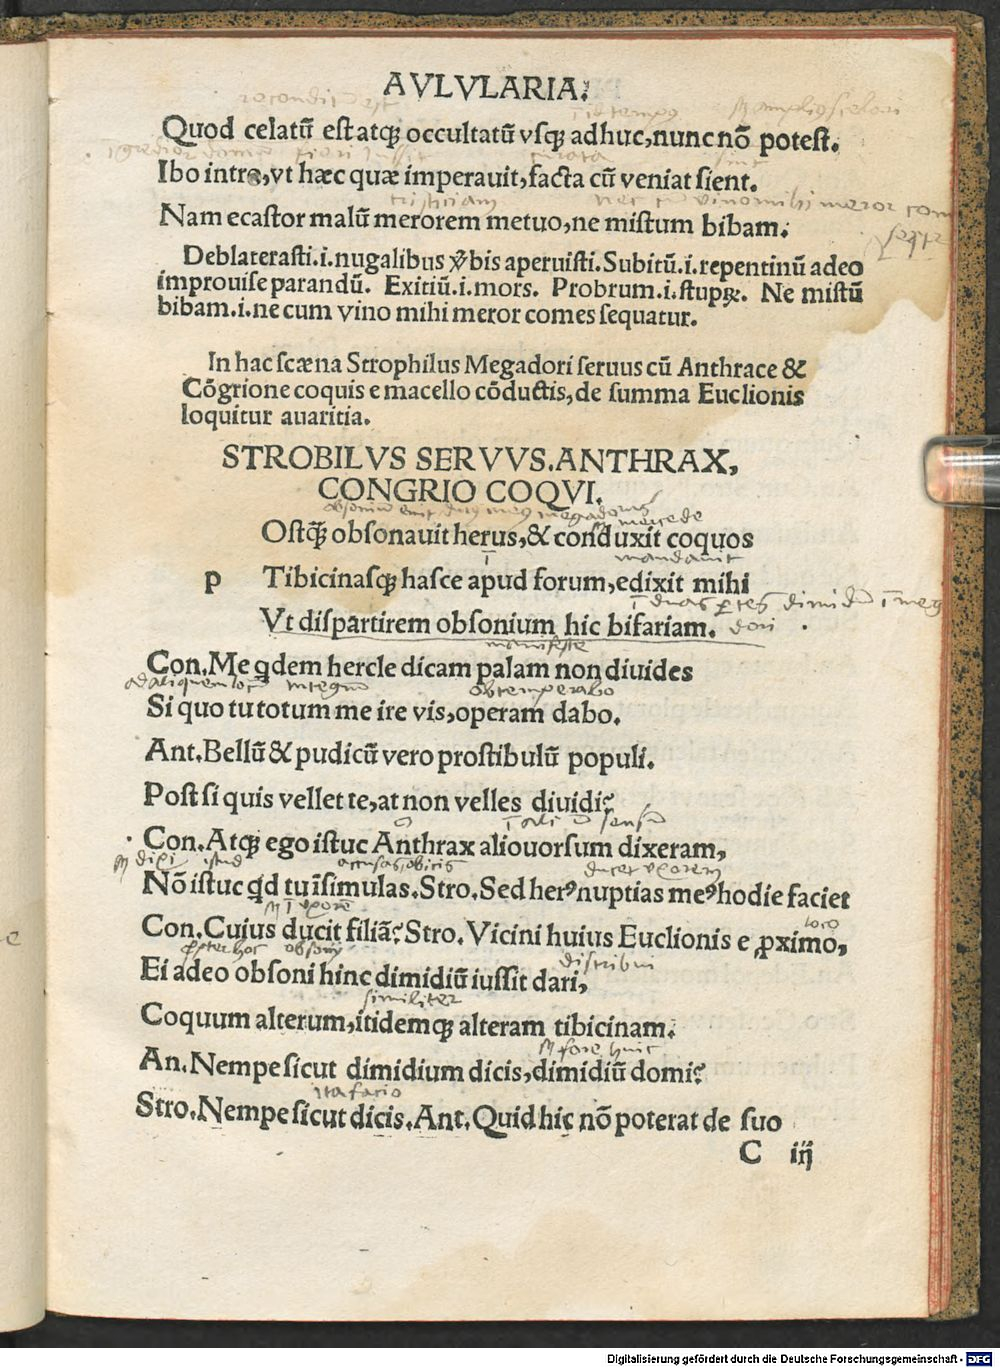 AVLVLARIA.
recondit̄ est
Quod celatū est atq̃ occultatū vsq̃ ad huc, nunc nō potest.
Ibo intra, vt hæc quæ imperauit, facta cū veniat sient.
tristiciam
Nam ecastor malū merorem metuo, ne mistum bibam.
Deblaterasti.i.nugalibus v̄bis aperuisti. Subitū.i.repentinū adeo
improuise parandū. Exitiū.i.mors. Probrum.i.stupꝝ. Ne mistū
bibam.i.ne cum vino mihi meror comes sequatur.
In hac scæna Strophilus Megadori seruus cū Anthrace &
Cōgrione coquis e macello cōductis, de summa Euclionis
loquitur auaritia.
STROBILVS SERVVS. ANTHRAX,
CONGRIO COQVI.
mercede
Ostq̃ obsonauit herus, & conduxit coquos
mandauit
p Tibicinasq̃ hasce apud forum, edixit mihi
Vt dispartirem obsonium hic bifariam.
dori
manifeste
Con. Me qdem hercle dicam palam non diuides
obtemperabo
Si quo tu totum me ire vis, operam dabo.
Ant. Bellū & pudicū vero prostibulū populi.
Post si quis vellet te, at non velles diuidi?
Con. Atq̃ ego istuc Anthrax aliouorsum dixeram,
accusas, obicis
Nō istuc qd tu īsimulas. Stro. Sed herꝰ nuptias meꝰ hodie faciet
loco
Con. Cuius ducit filiā? Stro. Vicini huius Euclionis e ꝓximo,
distribui
Ei adeo obsoni hinc dimidiū iussit dari,
similiter
Coquum alterum, itidemq̃ alteram tibicinam.
An. Nempe sicut dimidium dicis, dimidiū domi?
ita facio
Stro. Nempe sicut dicis. Ant. Quid hic nō poterat de suo
C iij
Digitalisierung gefördert durch die Deutsche Forschungsgemeinschaft - DFG